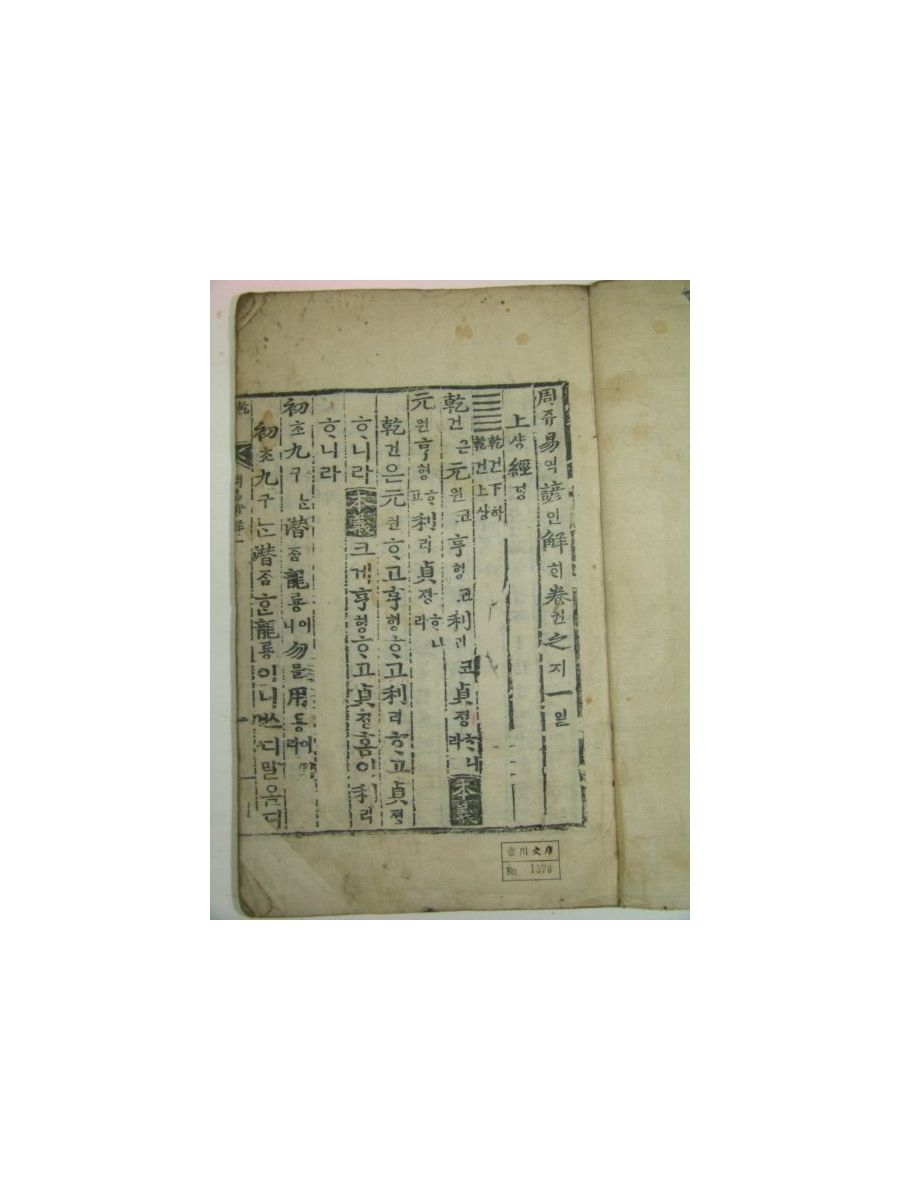 周쥬易역諺언解ᄒᆡ卷권之지一일
上샹經경
乾건下하
乾건上샹
乾건은元원코亨형코利리코貞뎡ᄒᆞ니라 本義
元원亨형ᄒᆞ고利리貞뎡ᄒᆞ니라
乾건은元원ᄒᆞ고亨형ᄒᆞ고利리ᄒᆞ고貞뎡
ᄒᆞ니라 本義 크게亨형ᄒᆞ고貞뎡홈이利리
ᄒᆞ니라
初초九구ᄂᆞᆫ潛ᄌᆞᆷ龍룡이니勿믈用용이니라
初초九구ᄂᆞᆫ潛ᄌᆞᆷᄒᆞᆫ龍룡이니ᄡᅳ디말올디
乾
川文庫
No 1378